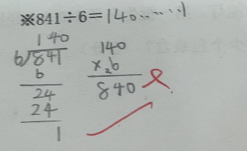 ※841÷6=140……1
140
6)841
6
24
24
1
140
×6
840